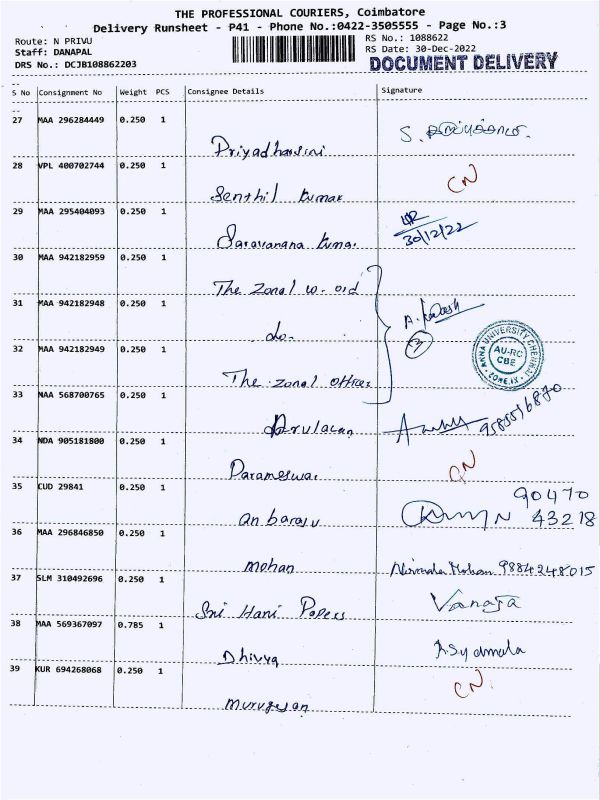 THE PROFESSIONAL COURIERS, Coimbatore
Delivery Runsheet - P41 - Phone No.:0422-3505555 - Page No.:3
Route: N PRIVU
RS No.: 1088622
Staff: DANAPAL
RS Date: 30-Dec-2022
DRS No.: DCJB108862203
DOCUMENT DELIVERY
S No Consignment No Weight PCS Consignee Details Signature
27 MAA 296284449 0.250 1
Priyadharsini
28 VPL 400702744 0.250 1
CN
Senthil Kumar
29 MAA 295404093 0.250 1
30/12/22
Saravanana Kumar
30 MAA 942182959 0.250 1
The Zonal
31 MAA 942182948 0.250 1
do-
3
ANNA UNIVERSITY CHENNAI
AU-RC
CBE
ZONE.IX
32 MAA 942182949 0.250 1
The Zonal officer
33 NAA 568700765 0.250 1
Arulalan
34 NDA 905181800 0.250 1
CN
Parameswar
35 CUD 29841 0.250 1
90470
43218
anbarasu
36 MAA 296846850 0.250 1
mohan
Mohan 9884248015
37 SLM 310492696 0.250 1
Vanaja
Sri Hani Papers
38 MAA 569367097 0.785 1
Syamala
Dhivya
39 KUR 694268068 0.250 1
CN
murugesan